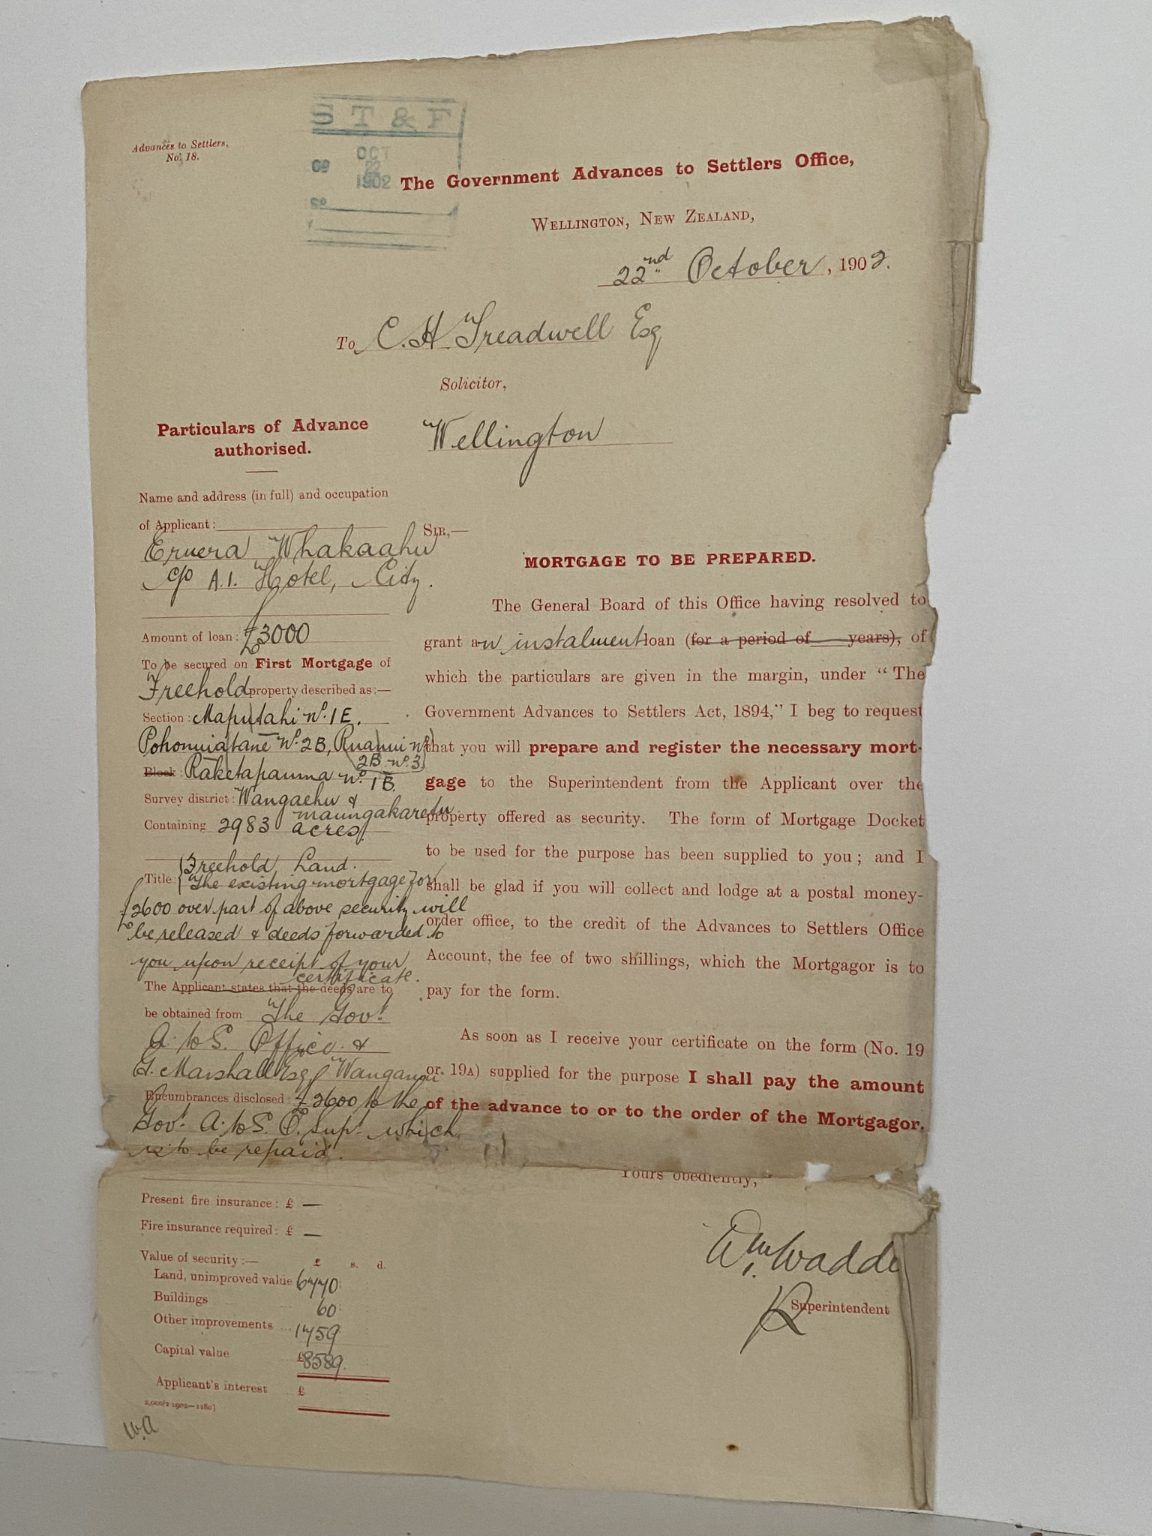 Advances to Settlers,
No. 18.
S T & F
OCT
22
1902
The Government Advances to Settlers Office,
WELLINGTON, NEW ZEALAND,
22nd October, 1902.
To C. H. Treadwell Esq
Solicitor,
Wellington
Particulars of Advance
authorised.
Name and address (in full) and occupation
of Applicant:
Eruera Whakaahu
c/o A.1. Hotel, City.
Amount of loan: £3000
To be secured on First Mortgage of
Freehold property described as:—
Section: Maputahi No. 1E.
Pohonuiatane No. 2B, Ruanui No.
2B No. 3
Block: Raketapauma No. 1B
Survey district: Wangaehu &
maungakaretu
Containing 2983 acres
Title: Freehold Land.
The existing mortgage for
£2600 over part of above security will
be released & deeds forwarded to
you upon receipt of your
certificate.
The Applicant states that the deeds are to
be obtained from The Govt.
A. to S. Office &
G. Marshall Esq Wanganui
Encumbrances disclosed: £2600 to the
Govt. A. to S. O. Supt. which
is to be repaid.
Present fire insurance: £ —
Fire insurance required: £ —
Value of security:— £ s. d.
Land, unimproved value 6770
Buildings 60
Other improvements ... 1759
Capital value £8589
Applicant's interest £
SIR,—
MORTGAGE TO BE PREPARED.
The General Board of this Office having resolved to
grant an instalment loan (for a period of years), of
which the particulars are given in the margin, under "The
Government Advances to Settlers Act, 1894," I beg to request
that you will prepare and register the necessary mort-
gage to the Superintendent from the Applicant over the
property offered as security. The form of Mortgage Docket
to be used for the purpose has been supplied to you; and I
shall be glad if you will collect and lodge at a postal money-
order office, to the credit of the Advances to Settlers Office
Account, the fee of two shillings, which the Mortgagor is to
pay for the form.
As soon as I receive your certificate on the form (No. 19
or 19A) supplied for the purpose I shall pay the amount
of the advance to or to the order of the Mortgagor.
Yours obediently,
Superintendent